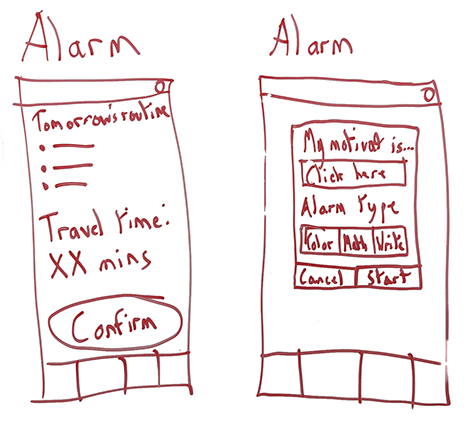 Alarm
Tomorrow's routine
Travel time:
XX mins
Confirm
Alarm
My motivat is...
Click here
Alarm type
Color Math Write
Cancel Start